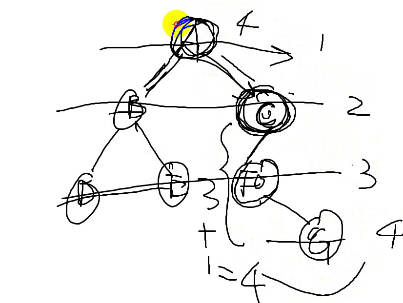 A 4
1
B C 2
D E 3 F 3
+
G 4
1=4